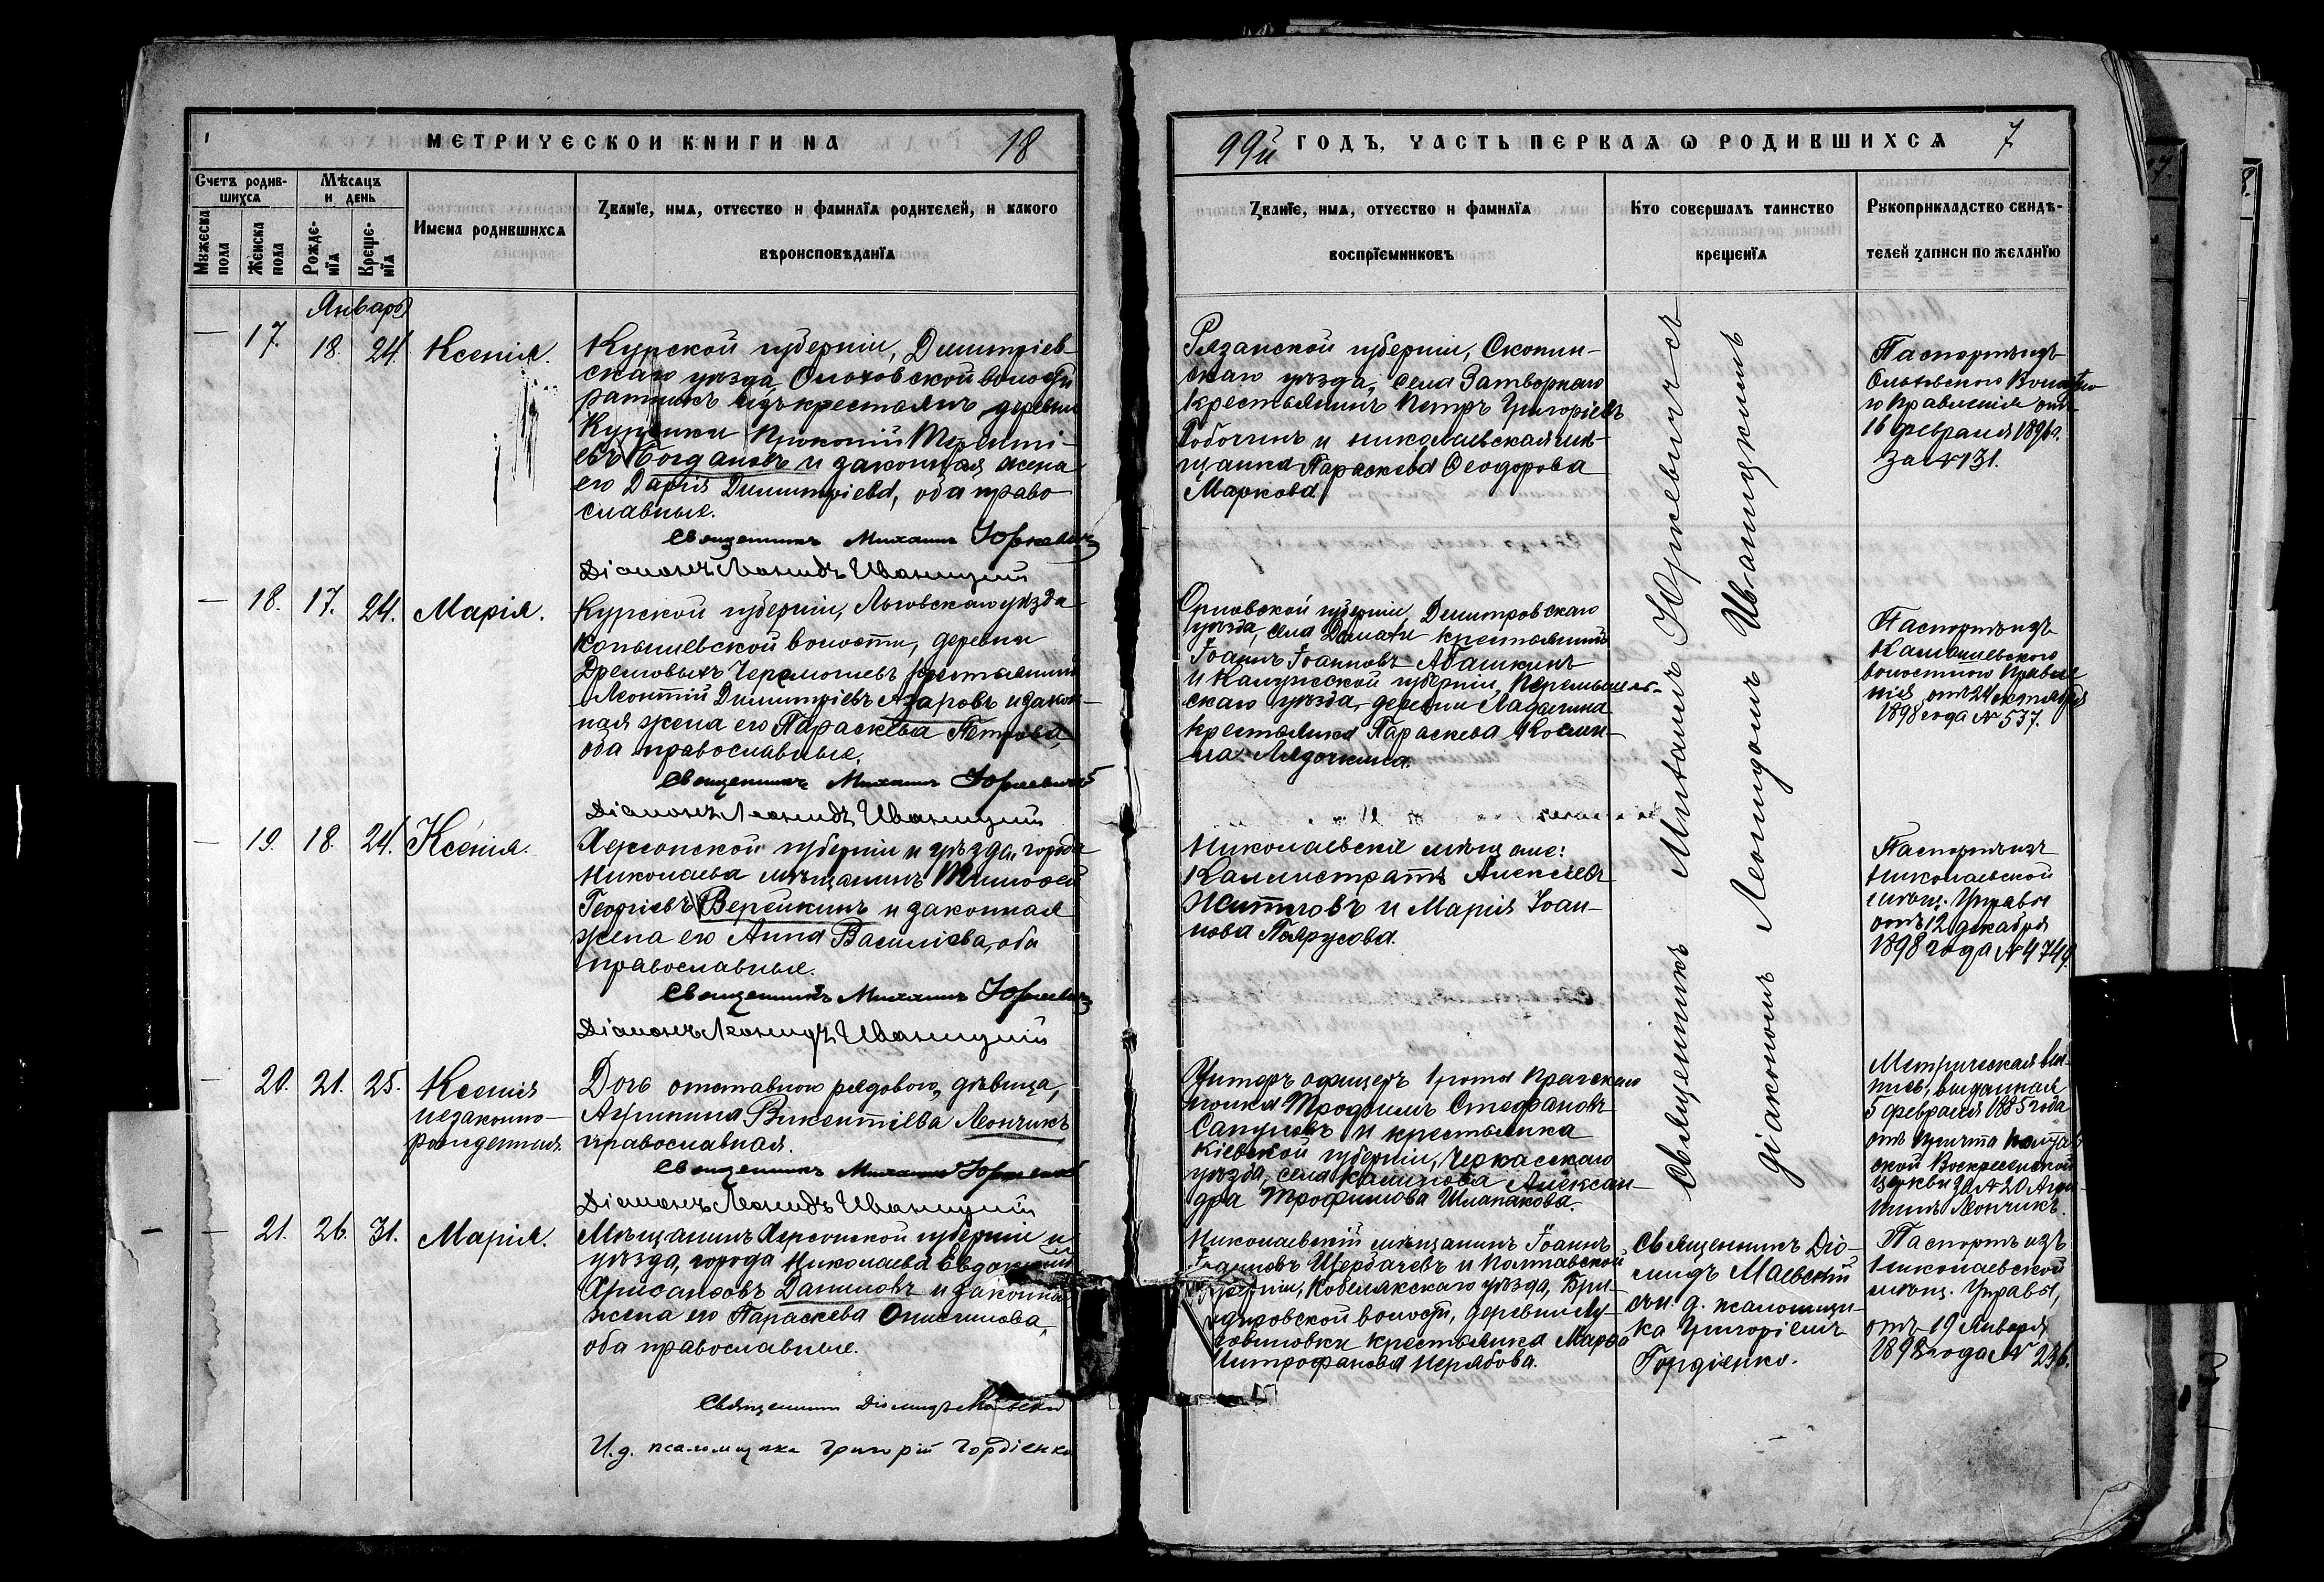 МЕТРИЧЕСКОЙ КНИГИ НА 18
99й ГОДЪ, ЧАСТЬ ПЕРВАЯ Ѡ РОДИВШИХСЯ 7
Счетъ родив-
шихся
Мѣсяцъ
и день
Мужеска
пола
Женска
пола
Рожде-
нїя
Креще-
нїя
Имена родившихся
Званїе, имя, отчество и фамилїя родителей, и какого
вѣроисповѣданїя
Званїе, имя, отчество и фамилїя
воспрїемниковъ
Кто совершалъ таинство
крещенїя
Рукоприкладство свидѣ-
телей записи по желанїю
Январь
— 17. 18. 24. Ксенія.
Курской губерніи, Димитріев-
скаго уѣзда, волости
ратникъ изъ крестьянъ, деревни
Прокопій
евъ Богдановъ и законная жена
его Дарія Димитріева, оба право-
славные.
Священникъ Михаилъ Юркевичъ
Діаконъ Леонидъ Иваницкій
Рязанской губерніи, Скопин-
скаго уѣзда, села Затворнаго
крестьянинъ Петръ Григоріевъ
и николаевская мѣ-
щанка Параскева Ѳеодорова
Маркова.
Паспортъ изъ
Волостно-
го Правленія отъ
16 февраля 1896 г.
за № 131.
— 18. 17. 24. Марія.
Курской губерніи, Льговскаго уѣзда
волости, деревни
крестьянинъ
Леонтій Димитріевъ Азаровъ и закон-
ная жена его Параскева Петрова,
оба православные.
Священникъ Михаилъ Юркевичъ
Діаконъ Леонидъ Иваницкій
Орловской губерніи, Димитровскаго
уѣзда, села крестьянинъ
Іоаннъ Іоанновъ Абашкинъ
и Калужской губерніи, Перемышль-
скаго уѣзда, деревни
крестьянка Параскева Косми-
на Лядочкина.
Паспортъ изъ
волостного Правле-
нія отъ 24 сентября
1898 года № 537.
— 19. 18. 24. Ксенія.
Херсонской губерніи и уѣзда, города
Николаева мѣщанинъ Тимоѳей
Георгіевъ Верейкинъ и законная
жена его Анна Василіева, оба
православные.
Священникъ Михаилъ Юркевичъ
Діаконъ Леонидъ Иваницкій
Николаевскіе мѣщане:
Каллистратъ Алексіевъ
и Марія Іоан-
нова Парусова.
Паспортъ изъ
Николаевской
мѣщ. Управы
отъ 12 декабря
1898 года № 4749.
— 20. 21. 25. Ксенія
незаконно-
рожденная.
Дочь отставного рядового, дѣвица,
Агрипина Викентіева Леончикъ
православная.
Священникъ Михаилъ Юркевичъ
Діаконъ Леонидъ Иваницкій
Унтеръ офицеръ 1 роты Прагскаго
полка Трофимъ Стефановъ
Сапуновъ и крестьянка
Кіевской губерніи, Черкасскаго
уѣзда, села Алексан-
дра Трофимова Шлапакова.
Метрическая вы-
пись, выданная
5 февраля 1885 года
отъ причта Полтав-
ской Воскресенской
Церкви за № 20
Леончикъ.
Священникъ Михаилъ Юркевичъ съ
діакономъ Леонидомъ Иваницкимъ
— 21. 26. 31. Марія.
Мѣщанинъ Херсонской губерніи и
уѣзда, города Николаева Евдокимъ
Хрисанѳовъ Даниловъ и законная
жена его Параскева Онисимова,
оба православные.
Священникъ Діомидъ Маевскій
И. д. псаломщика Григорій Гордіенко
Николаевскій мѣщанинъ Іоаннъ
Іоанновъ Щербачевъ и Полтавской
губерніи, Кобелякскаго уѣзда, Бри-
гадировской волости, деревни Лу-
крестьянка Марѳа
Митрофанова
Священникъ Діо-
мидъ Маевскій
съ и. д. псаломщи-
ка Григоріемъ
Гордіенко.
Паспортъ изъ
Николаевской
мѣщ. Управы,
отъ 19 Января
1898 года № 236.